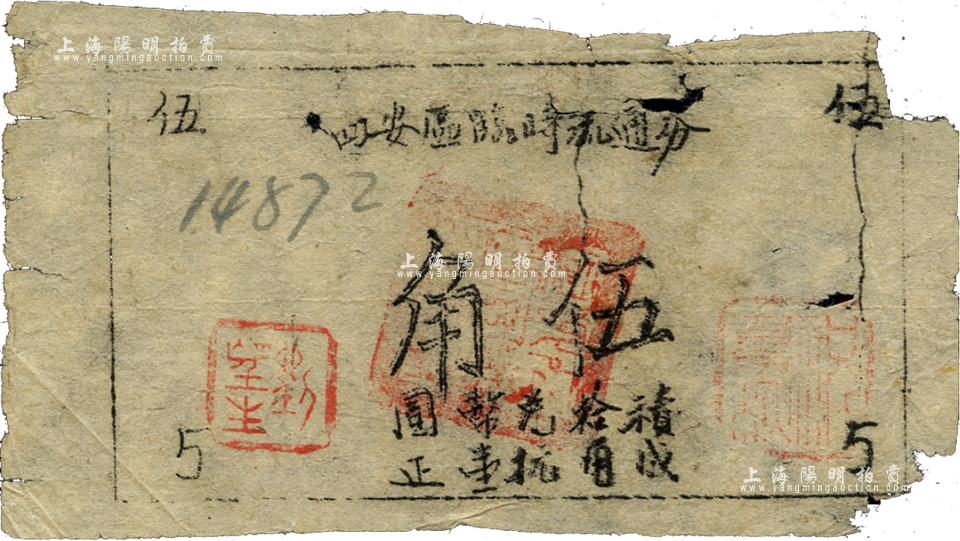 上海陽明拍賣
www.yangmingauction.com
伍
伍
四安區臨時流通券
14872
上海陽明拍賣
www.yangmingauction.com
伍角
積成拾角兌抗幣壹圓正
5
5
上海陽明拍賣
www.yangmingauction.com